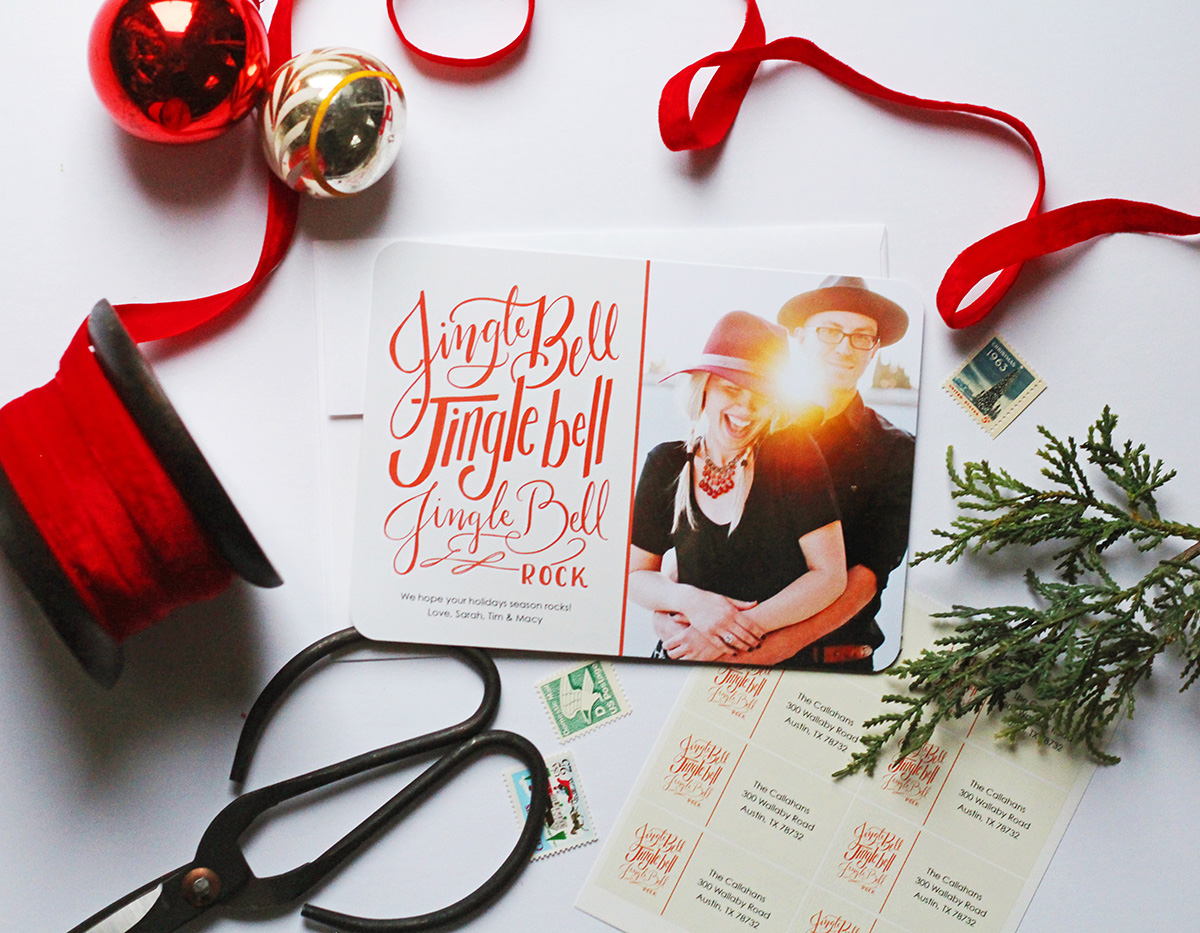 Jingle Bell
Jingle bell
Jingle Bell
ROCK
We hope your holidays season rocks!
Love, Sarah, Tim & Macy
CHRISTMAS
1963
UNITED STATES
5¢
US Postage
D
Domestic Mail
ROCK
The Callahans
300 Wallaby Road
Austin, TX 78732
Jingle Bell
Jingle bell
Jingle Bell
ROCK
The Callahans
300 Wallaby Road
Austin, TX 78732
Jingle bell
Jingle Bell
ROCK
The Callahans
300 Wallaby Road
Austin, TX 78732
Jingle Bell
Jingle bell
Jingle Bell
ROCK
The Callahans
300 Wallaby Road
Austin, TX 78732
Jingle Bell
Jingle bell
Jingle Bell
ROCK
The Callahans
300 Wallaby Road
Austin, TX 78732
Jingle Bell